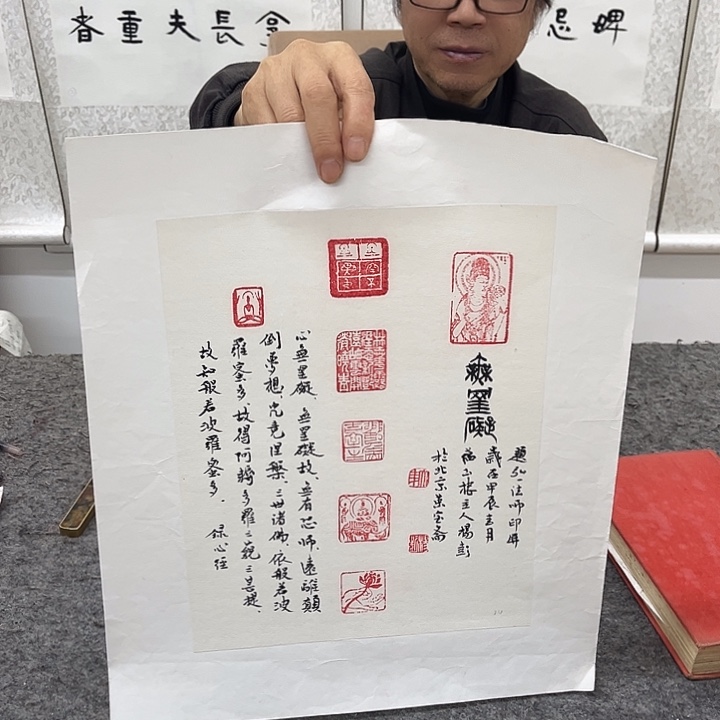 重夫長
忌
無罣礙
題弘一法師印屏
歲在甲辰吉月
主人楊彭
於北京荣宝斋
心無罣礙、無罣礙故、無有恐怖、遠離顛
倒夢想、究竟涅槃、三世諸佛、依般若波
羅蜜多、故得阿耨多羅三藐三菩提、
故知般若波羅蜜多。
録心经